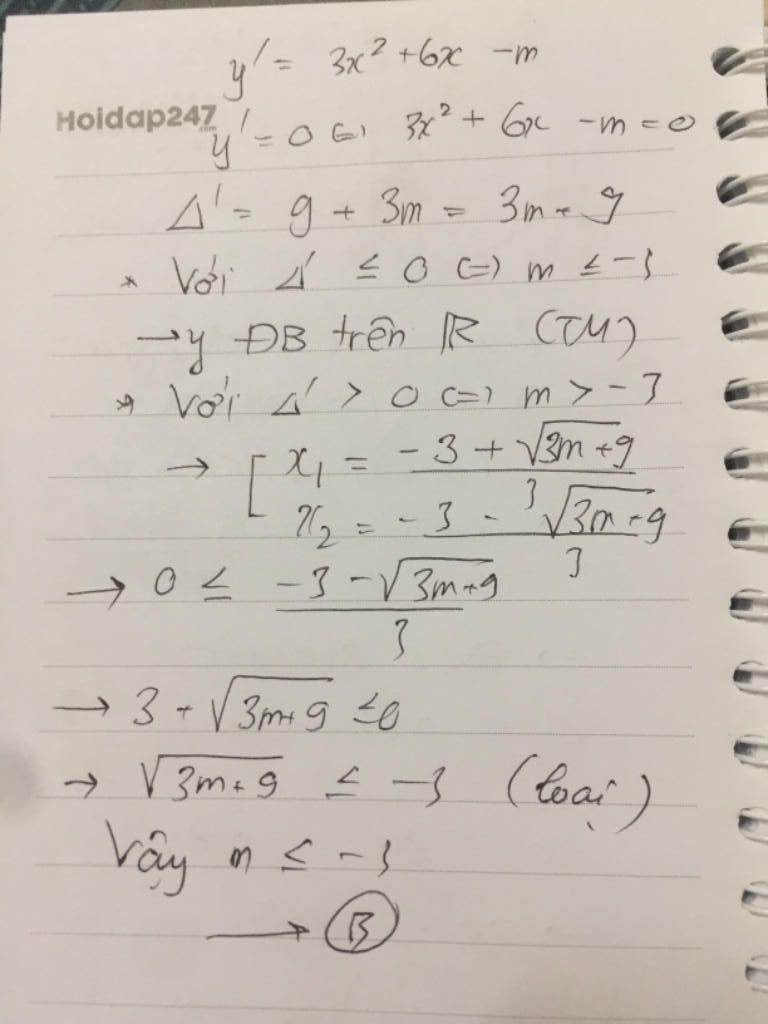 y' = 3x² + 6x - m
Hoidap247.com
y' = 0 (=) 3x² + 6x - m = 0
Δ' = 9 + 3m = 3m + 9
* Với Δ' ≤ 0 (=) m ≤ -3
→ y ĐB trên ℝ (TM)
* Với Δ' > 0 (=) m > -3
→ [ x₁ = (-3 + √(3m+9))/3
x₂ = (-3 - √(3m+9))/3
→ 0 ≤ (-3 - √(3m+9))/3
→ 3 + √(3m+9) ≤ 0
→ √(3m+9) ≤ -3 (loại)
Vậy m ≤ -3
→ B